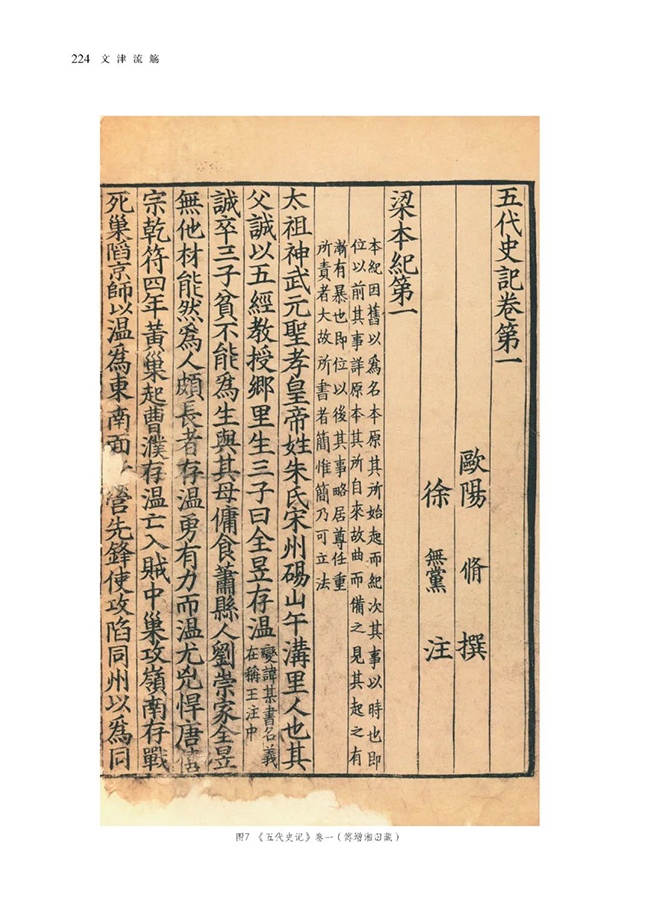 224 文津流觞
五代史記卷第一
歐陽 脩 撰
徐 無黨 注
梁本紀第一
本紀因舊以爲名本原其所始起而紀次其事以時也即
位以前其事詳原本其所自來故曲而備之見其起之有
漸有暴也即位以後其事略居尊任重
所責者大故所書者簡惟簡乃可立法
太祖神武元聖孝皇帝姓朱氏宋州碭山午溝里人也其
父誠以五經教授鄉里生三子曰全昱存温
變諱某書名義
在稱王注中
誠卒三子貧不能爲生與其母傭食蕭縣人劉崇家全昱
無他材能然爲人頗長者存温勇有力而温尤兇悍唐僖
宗乾符四年黃巢起曹濮存温亡入賊中巢攻嶺南存戰
死巢陷京師以温爲東南面 營先鋒使攻陷同州以爲同
图7 《五代史记》卷一（傅增湘旧藏）